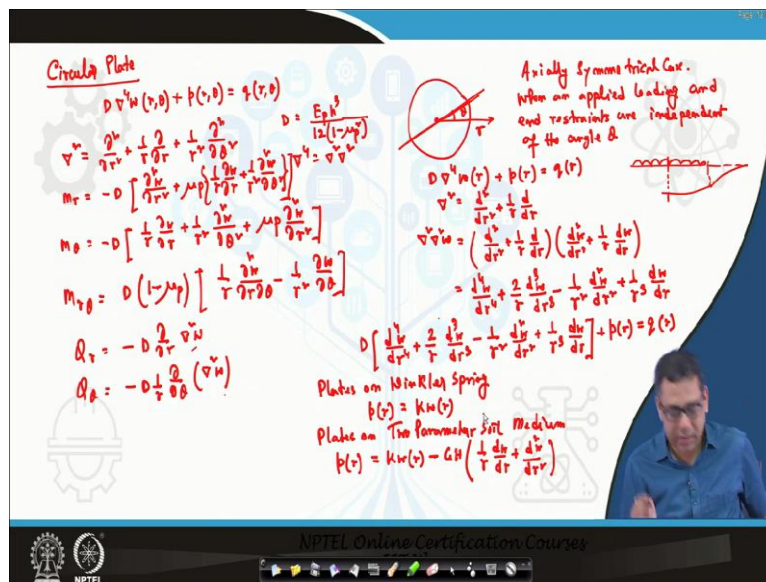 Circular Plate
D∇⁴w(r,θ) + p(r,θ) = q(r,θ)
D = Eₚh³ / 12(1-μₚ²)
∇² = ∂²/∂r² + 1/r ∂/∂r + 1/r² ∂²/∂θ²
∇⁴ = ∇²∇²
mᵣ = -D [∂²w/∂r² + μₚ {1/r ∂w/∂r + 1/r² ∂²w/∂θ²}]
m_θ = -D [1/r ∂w/∂r + 1/r² ∂²w/∂θ² + μₚ ∂²w/∂r²]
m_rθ = D(1-μₚ) [1/r ∂²w/∂r∂θ - 1/r² ∂w/∂θ]
Qᵣ = -D ∂/∂r ∇²w
Q_θ = -D 1/r ∂/∂θ (∇²w)
θ
r
Axially Symmetrical Case.
When an applied loading and
end restraints are independent
of the angle θ
D∇⁴w(r) + p(r) = q(r)
∇² = d²/dr² + 1/r d/dr
∇²∇²w = (d²/dr² + 1/r d/dr) (d²w/dr² + 1/r dw/dr)
= d⁴w/dr⁴ + 2/r d³w/dr³ - 1/r² d²w/dr² + 1/r³ dw/dr
D [d⁴w/dr⁴ + 2/r d³w/dr³ - 1/r² d²w/dr² + 1/r³ dw/dr] + p(r) = q(r)
Plates on Winkler Spring
p(r) = Kw(r)
Plates on Two Parameter Soil Medium
p(r) = Kw(r) - GH (1/r dw/dr + d²w/dr²)
NPTEL Online Certification Courses
NPTEL